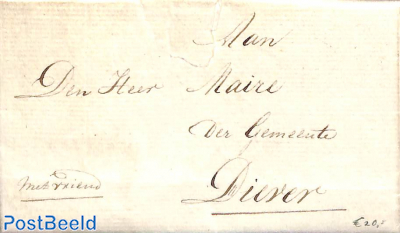 Aan
Den Heer Maire
Der Gemeente
Diever
met vriend
€20,-
PostBeeld